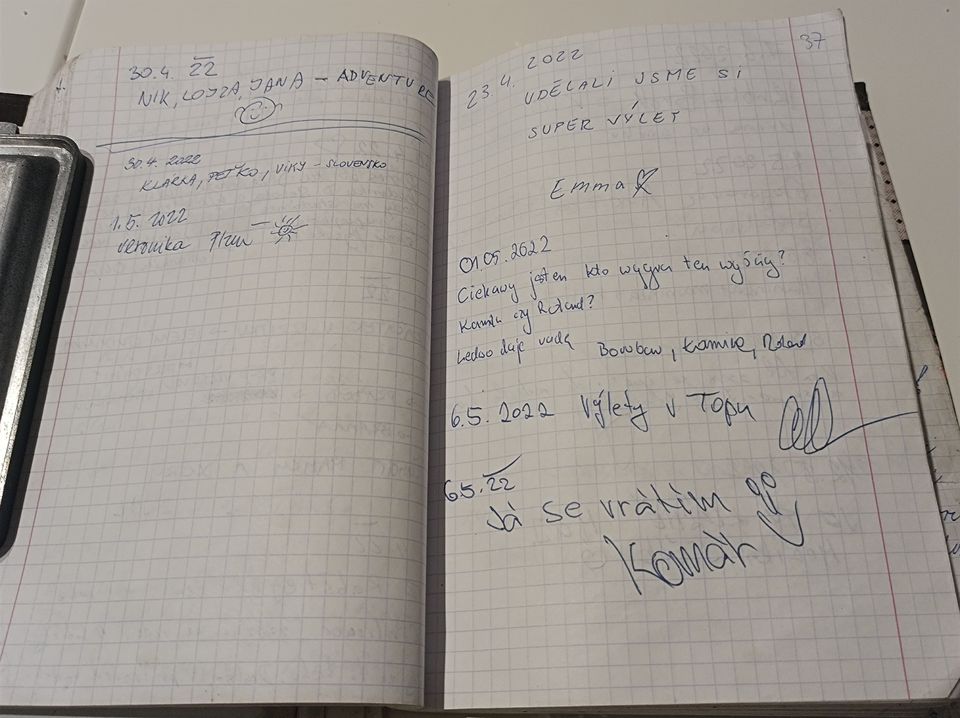 30.4. 22
NIK, LOJZA, JANA – ADVENTURE
30.4. 2022
KLARKA, PEŤKO, VIKY – SLOVENSKO
1.5. 2022
Veronika
37
23.4. 2022
UDĚLALI JSME SI
SUPER VÝLET
Emma
01.05.2022
Ciekawy jestem kto wygra ten wyścig?
Kamila czy Roland?
Ledwo daję radę Kamila, Roland
6.5. 2022 Výlety v Topu
6.5. 22
Já se vrátím
Komár